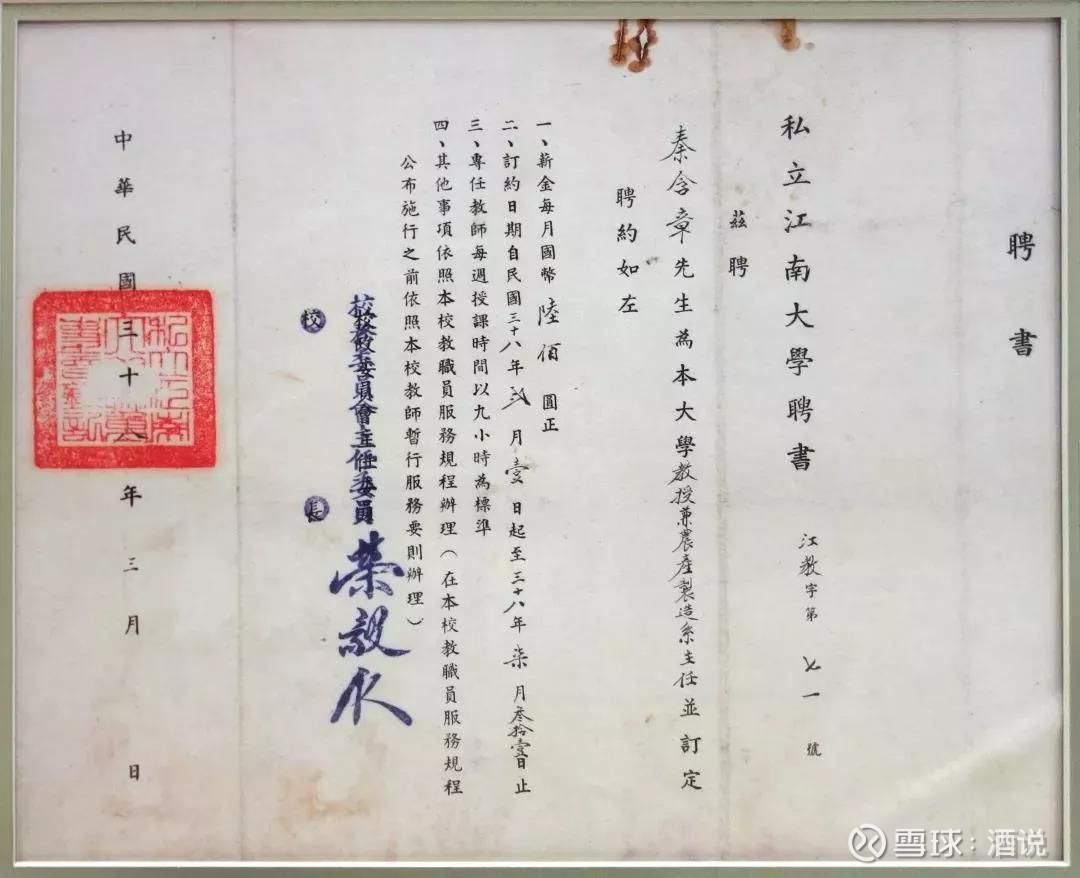 聘書
私立江南大學聘書 江教字第七一號
茲聘
秦含章先生為本大學教授兼農產製造系主任並訂定
聘約如左
一、薪金每月國幣陸佰圓正
二、訂約日期自民國三十八年貳月壹日起至三十八年柒月叁拾壹日止
三、專任教師每週授課時間以九小時為標準
四、其他事項依照本校教職員服務規程辦理(在本校教職員服務規程
公布施行之前依照本校教師暫行服務要則辦理)
校務委員會主任委員 榮毅仁
校長
中華民國三十八年三月 日
雪球:酒说